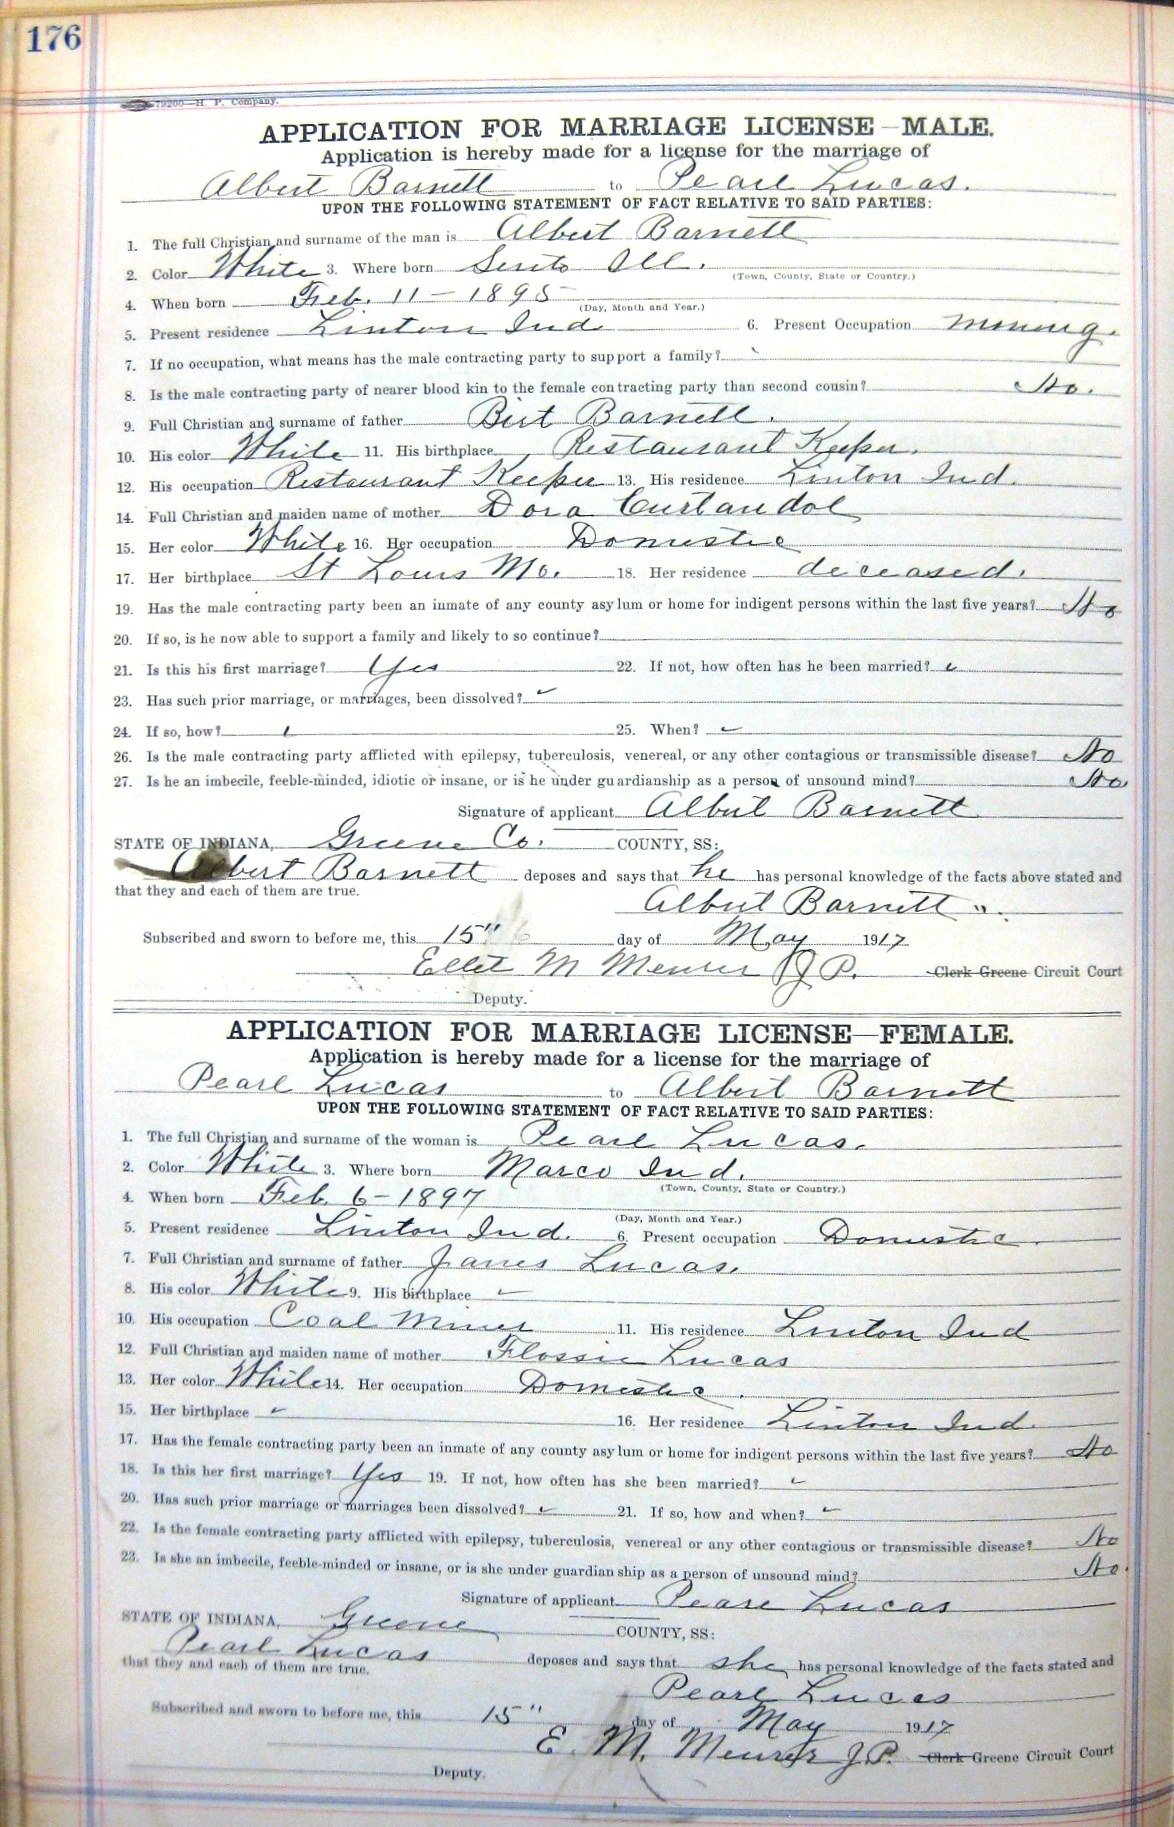 176
79200—H. P. Company.
APPLICATION FOR MARRIAGE LICENSE—MALE.
Application is hereby made for a license for the marriage of
Albert Barnett to Pearl Lucas.
UPON THE FOLLOWING STATEMENT OF FACT RELATIVE TO SAID PARTIES:
1. The full Christian and surname of the man is Albert Barnett
2. Color White 3. Where born Ill.
(Town, County, State or Country.)
4. When born Feb. 11 - 1895
(Day, Month and Year.)
5. Present residence Linton Ind 6. Present Occupation Mining.
7. If no occupation, what means has the male contracting party to support a family?
8. Is the male contracting party of nearer blood kin to the female contracting party than second cousin? No.
9. Full Christian and surname of father Birt Barnett.
10. His color White 11. His birthplace Restaurant Keeper.
12. His occupation Restaurant Keeper 13. His residence Linton Ind.
14. Full Christian and maiden name of mother Dora
15. Her color White 16. Her occupation Domestic
17. Her birthplace St Louis Mo. 18. Her residence deceased.
19. Has the male contracting party been an inmate of any county asylum or home for indigent persons within the last five years? No
20. If so, is he now able to support a family and likely to so continue?
21. Is this his first marriage? Yes 22. If not, how often has he been married? ✓
23. Has such prior marriage, or marriages, been dissolved? ✓
24. If so, how? 25. When? ✓
26. Is the male contracting party afflicted with epilepsy, tuberculosis, venereal, or any other contagious or transmissible disease? No
27. Is he an imbecile, feeble-minded, idiotic or insane, or is he under guardianship as a person of unsound mind? No.
Signature of applicant Albert Barnett
STATE OF INDIANA, Greene Co. COUNTY, SS:
Albert Barnett deposes and says that he has personal knowledge of the facts above stated and
that they and each of them are true.
Albert Barnett ".
Subscribed and sworn to before me, this 15" day of May 1917
M J P. Clerk Greene Circuit Court
Deputy.
APPLICATION FOR MARRIAGE LICENSE—FEMALE.
Application is hereby made for a license for the marriage of
Pearl Lucas to Albert Barnett
UPON THE FOLLOWING STATEMENT OF FACT RELATIVE TO SAID PARTIES:
1. The full Christian and surname of the woman is Pearl Lucas.
2. Color White 3. Where born Marco Ind.
(Town, County, State or Country.)
4. When born Feb. 6 - 1897
(Day, Month and Year.)
5. Present residence Linton Ind. 6. Present occupation Domestic.
7. Full Christian and surname of father James Lucas.
8. His color White 9. His birthplace ✓
10. His occupation Coal Miner 11. His residence Linton Ind
12. Full Christian and maiden name of mother Flossie Lucas
13. Her color White 14. Her occupation Domestic.
15. Her birthplace ✓ 16. Her residence Linton Ind.
17. Has the female contracting party been an inmate of any county asylum or home for indigent persons within the last five years? No
18. Is this her first marriage? Yes 19. If not, how often has she been married? ✓
20. Has such prior marriage or marriages been dissolved? ✓ 21. If so, how and when? ✓
22. Is the female contracting party afflicted with epilepsy, tuberculosis, venereal or any other contagious or transmissible disease? No
23. Is she an imbecile, feeble-minded or insane, or is she under guardianship as a person of unsound mind? No.
Signature of applicant Pearl Lucas
STATE OF INDIANA, Greene COUNTY, SS:
Pearl Lucas deposes and says that she has personal knowledge of the facts stated and
that they and each of them are true.
Pearl Lucas
Subscribed and sworn to before me, this 15" day of May 1917
E. M. J.P. Clerk Greene Circuit Court
Deputy.